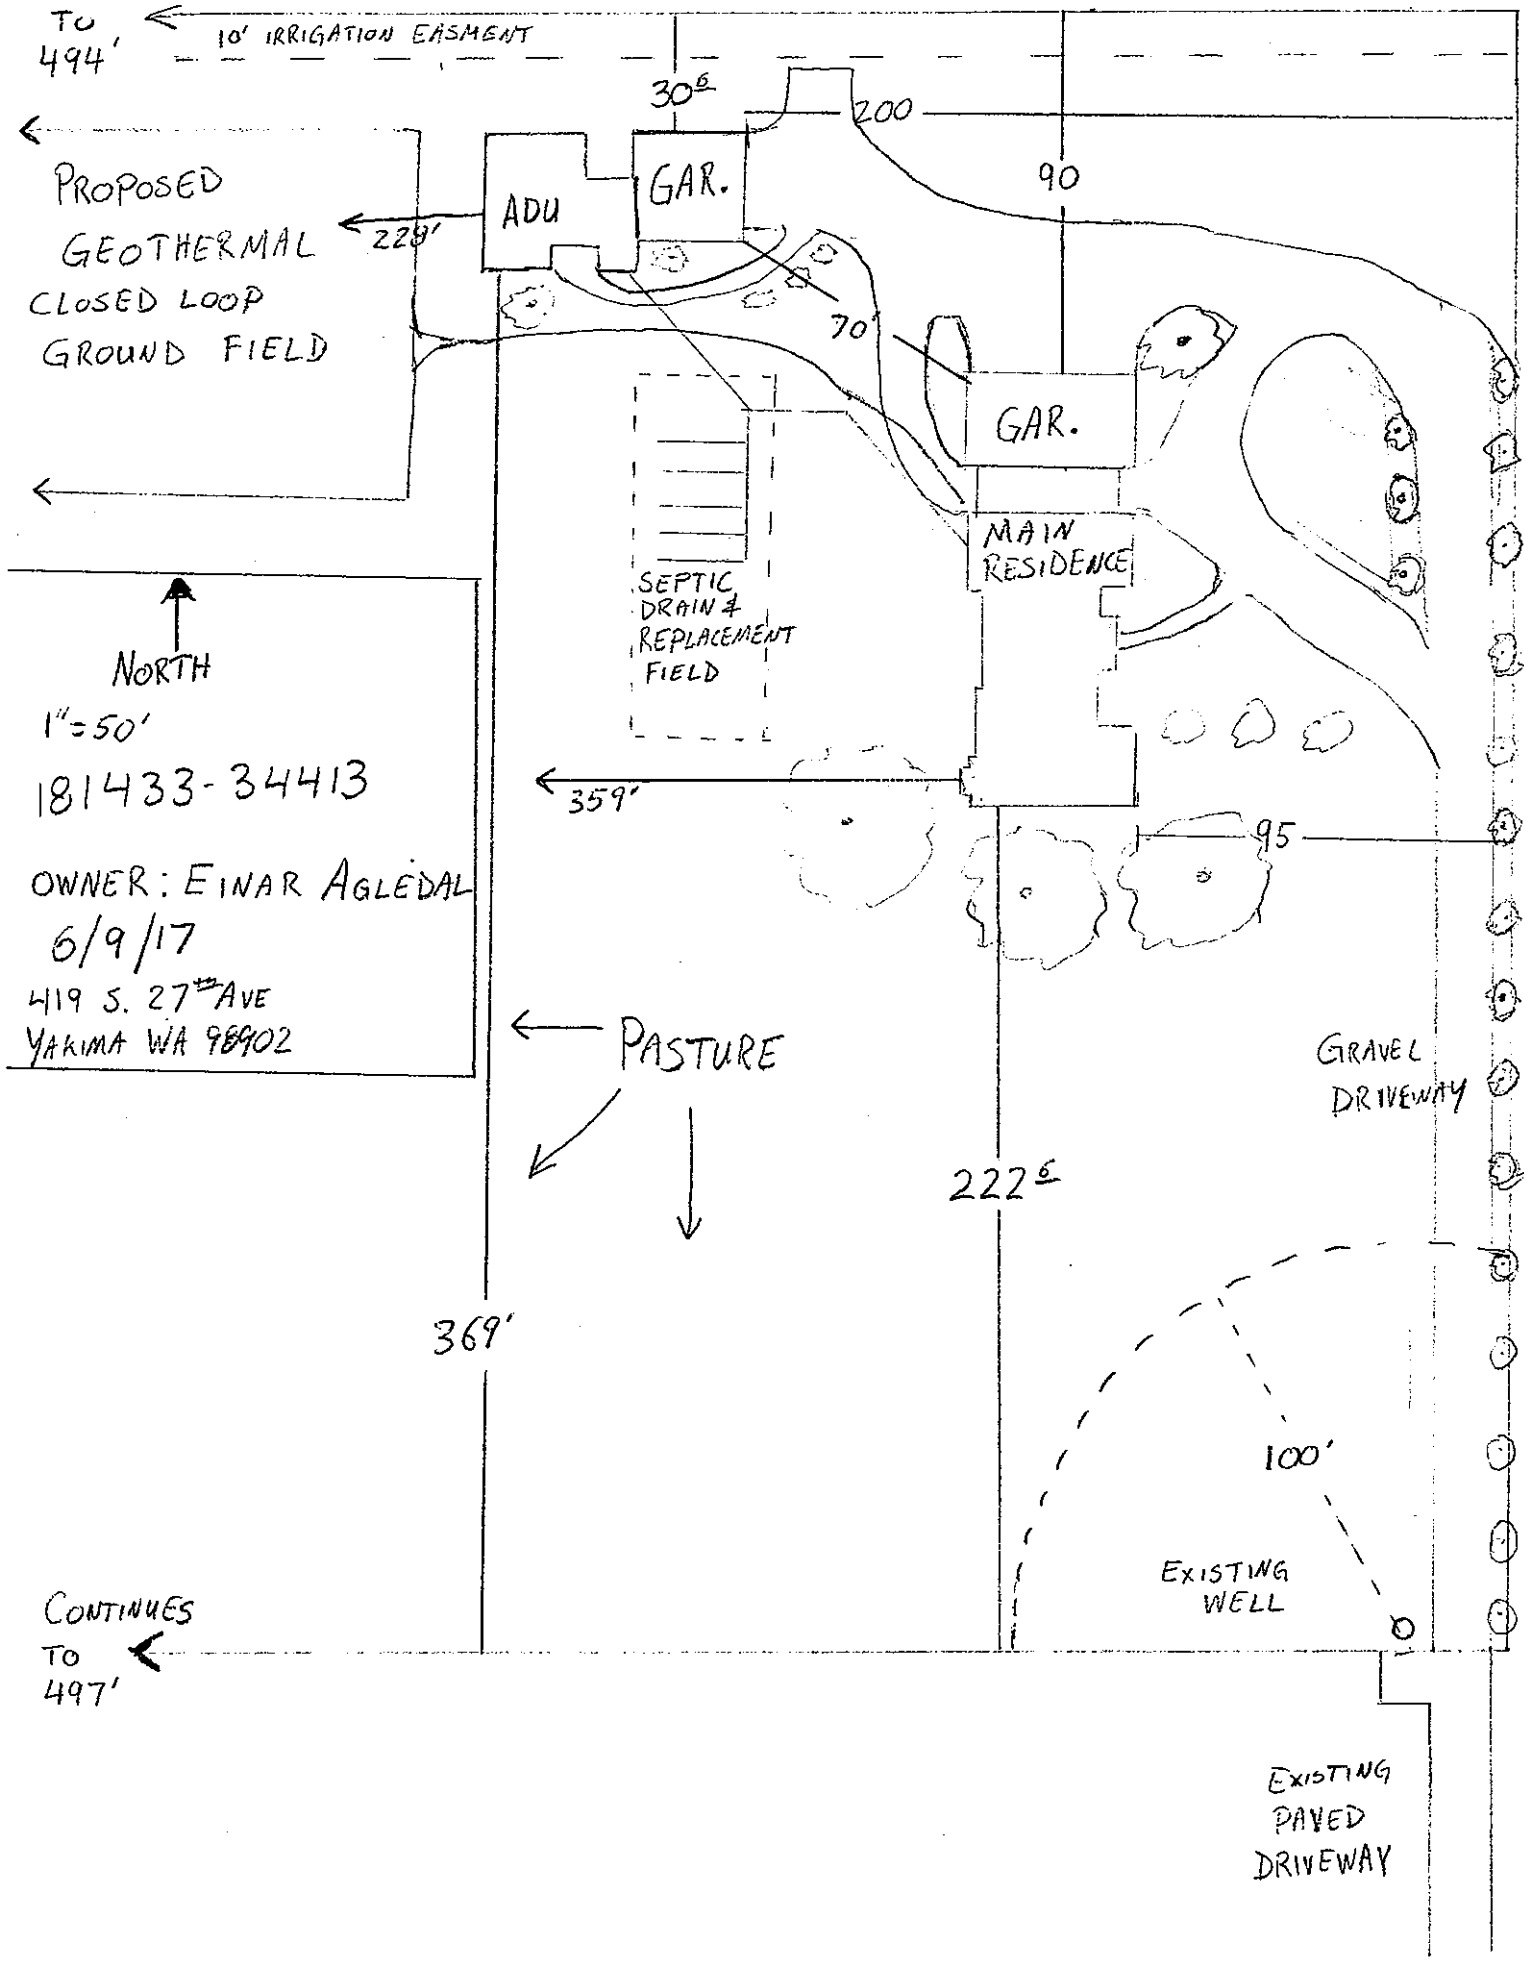 TO
494'
10' IRRIGATION EASMENT
30 6
200
PROPOSED
GEOTHERMAL
CLOSED LOOP
GROUND FIELD
228'
ADU
GAR.
90
70'
GAR.
MAIN
RESIDENCE
SEPTIC
DRAIN &
REPLACEMENT
FIELD
NORTH
1"=50'
181433-34413
OWNER: EINAR AGLEDAL
6/9/17
419 S. 27TH AVE
YAKIMA WA 98902
359'
95
PASTURE
GRAVEL
DRIVEWAY
222 6
369'
100'
EXISTING
WELL
CONTINUES
TO
497'
EXISTING
PAVED
DRIVEWAY